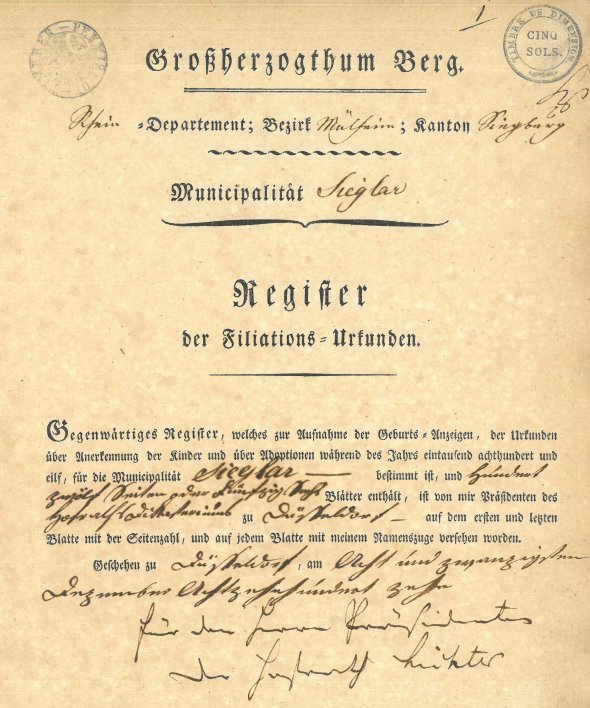 1
TIMBRE DE DIMENSION
CINQ
SOLS.
Großherzogthum Berg.
Rhein -Departement; Bezirk Mülheim; Kanton Siegburg
Municipalität Sieglar
Register
der Filiations-Urkunden.
Gegenwärtiges Register, welches zur Aufnahme der Geburts-Anzeigen, der Urkunden
über Anerkennung der Kinder und über Adoptionen während des Jahrs eintausend achthundert und
eilf, für die Municipalität Sieglar bestimmt ist, und Hundert
zwölf Seiten oder Fünfzig Sechs Blätter enthält, ist von mir Präsidenten des
Hofraths Dikasteriums zu Düsseldorf auf dem ersten und letzten
Blatte mit der Seitenzahl, und auf jedem Blatte mit meinem Namenszuge versehen worden.
Geschehen zu Düsseldorf, am Acht und zwanzigsten
Dezember Achtzehnhundert zehn
für den Herrn Präsidenten
der Hofrath